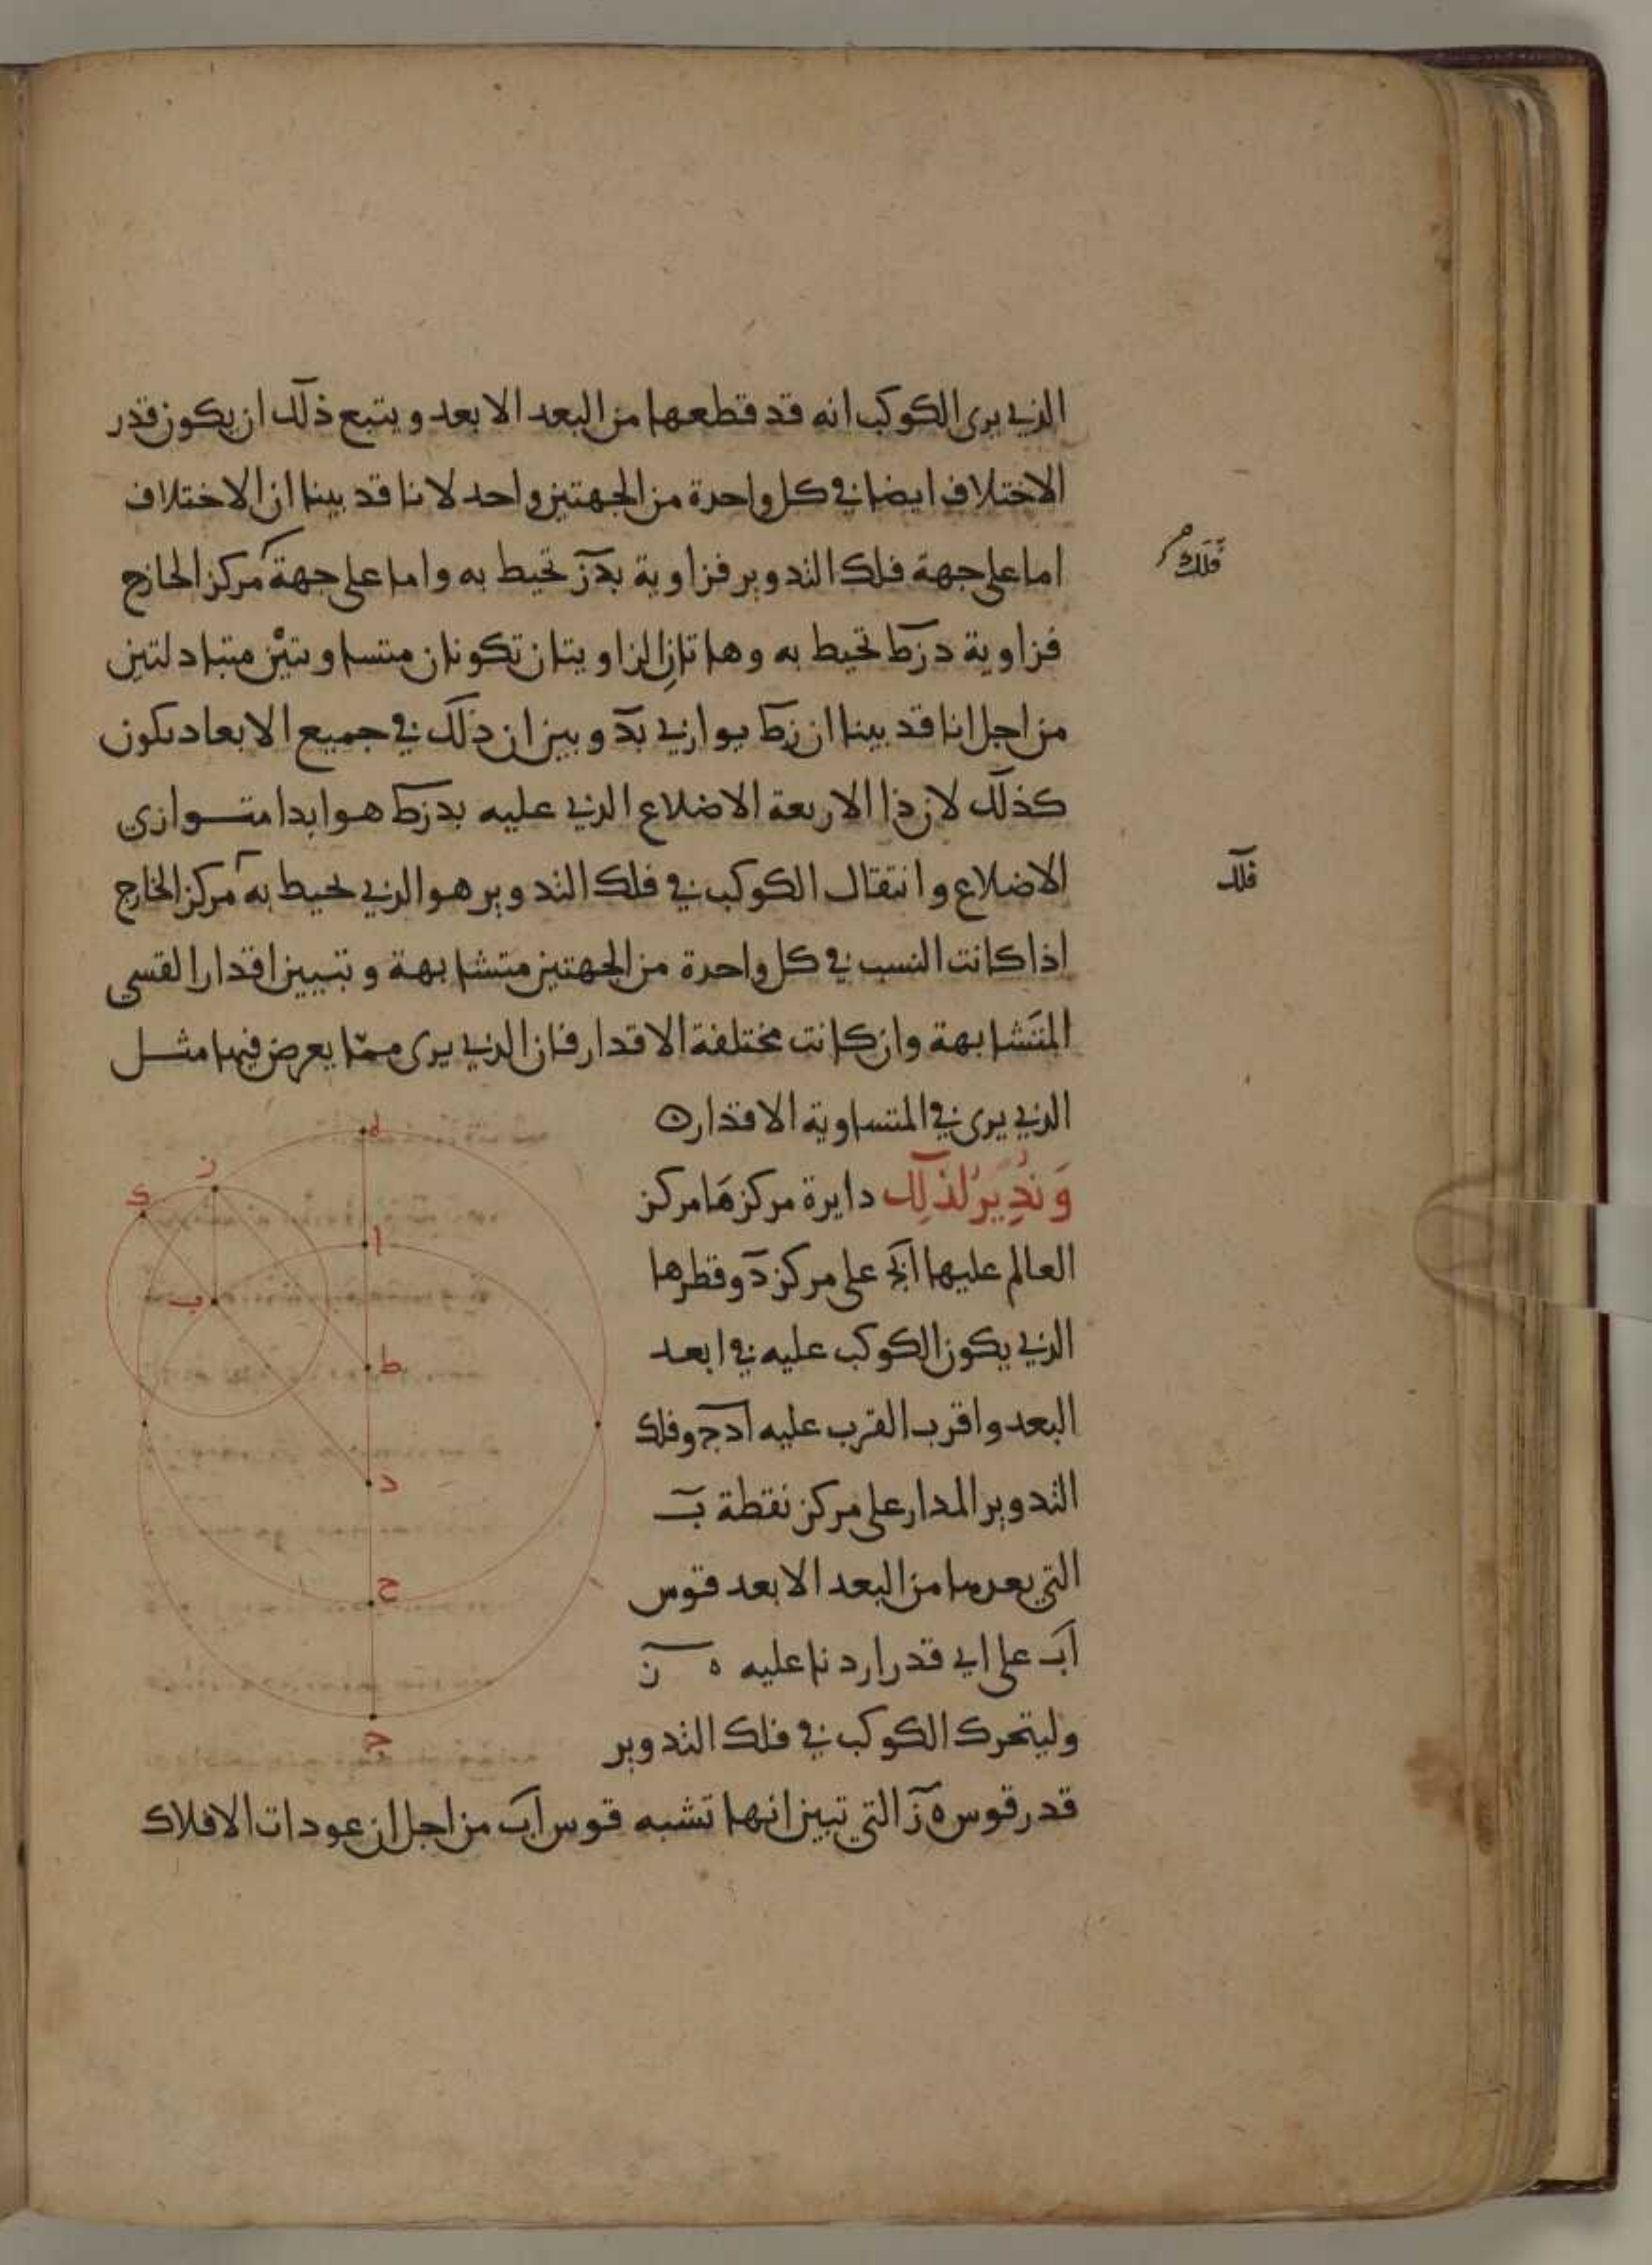 الذي يرى الكوكب انه قد قطعها من البعد الابعد ويتبع ذلك ان يكون قدر
الاختلاف ايضا في كل واحدة من الجهتين واحد لانا قد بينا ان الاختلاف
اما على جهة فلك التدوير فزاوية بدز تحيط به واما على جهة مركز الخارج
فلك
فزاوية دزط تحيط به وهاتان الزاويتان تكونان متساويتين متبادلتين
من اجل انا قد بينا ان زط يوازي بد وبين ان ذلك في جميع الابعاد يكون
كذلك لان ذا الاربعة الاضلاع الذي عليه بدزط هو ابدا متوازي
الاضلاع وانتقال الكوكب في فلك التدوير هو الذي يحيط به مركز الخارج
فلك
اذا كانت النسب في كل واحدة من الجهتين متشابهة وتبيين اقدار القسي
المتشابهة وان كانت مختلفة الاقدار فان الذي يرى مما يعرض فيها مثل
الذي يرى في المتساوية الاقدار ه
وندير لذلك دايرة مركزها مركز
العالم عليها ابج على مركز د وقطرها
الذي يكون الكوكب عليه في ابعد
البعد واقرب القرب عليه ادج وفلك
التدوير المدار على مركز نقطة ب
التي بعدها من البعد الابعد قوس
اب على اي قدر اردنا عليه ه ز
وليتحرك الكوكب في فلك التدوير
قدر قوس ه ز التي تبين انها تشبه قوس اب من اجل ان عودات الافلاك
ز
ك
ا
ب
ط
د
ح